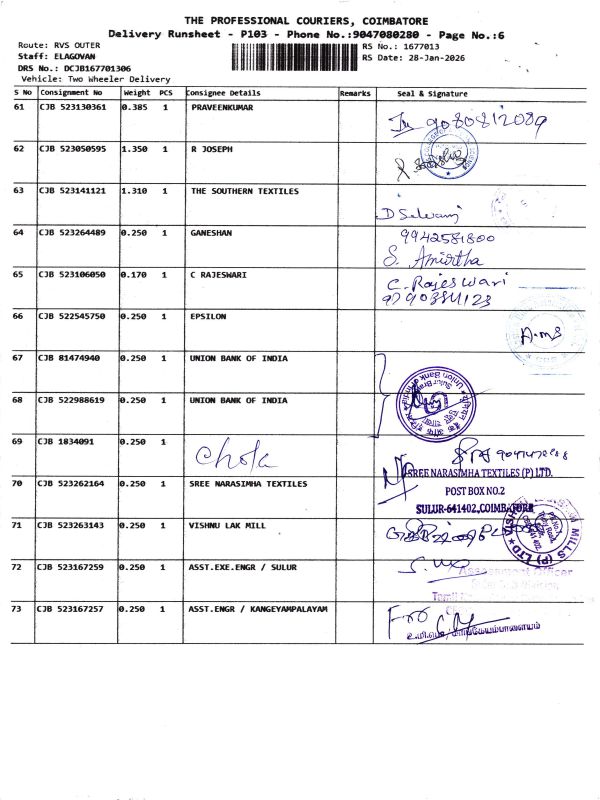 THE PROFESSIONAL COURIERS, COIMBATORE
Delivery Runsheet - P103 - Phone No.:9047080280 - Page No.:6
Route: RVS OUTER
RS No.: 1677013
Staff: ELAGOVAN
RS Date: 28-Jan-2026
DRS No.: DCJB167701306
Vehicle: Two Wheeler Delivery
S No Consignment No Weight PCS Consignee Details Remarks Seal & Signature
61 CJB 523130361 0.385 1 PRAVEENKUMAR
9080812089
62 CJB 523050595 1.350 1 R JOSEPH
63 CJB 523141121 1.310 1 THE SOUTHERN TEXTILES
D Selvaraj
64 CJB 523264489 0.250 1 GANESHAN
9942581800
S. Amirtha
65 CJB 523106050 0.170 1 C RAJESWARI
C. Rajeswari
66 CJB 522545750 0.250 1 EPSILON
A-ms
67 CJB 81474940 0.250 1 UNION BANK OF INDIA
68 CJB 522988619 0.250 1 UNION BANK OF INDIA
Union Bank of India
Sulur Branch
69 CJB 1834091 0.250 1
Chola
70 CJB 523262164 0.250 1 SREE NARASIMHA TEXTILES
SREE NARASIMHA TEXTILES (P) LTD.
POST BOX NO.2
SULUR-641402, COIMBATORE
71 CJB 523263143 0.250 1 VISHNU LAK MILL
MILLS (P) LTD
72 CJB 523167259 0.250 1 ASST.EXE.ENGR / SULUR
Assessment Officer
73 CJB 523167257 0.250 1 ASST.ENGR / KANGEYAMPALAYAM
உ.மி.பொ / காங்கேயம்பாளையம்